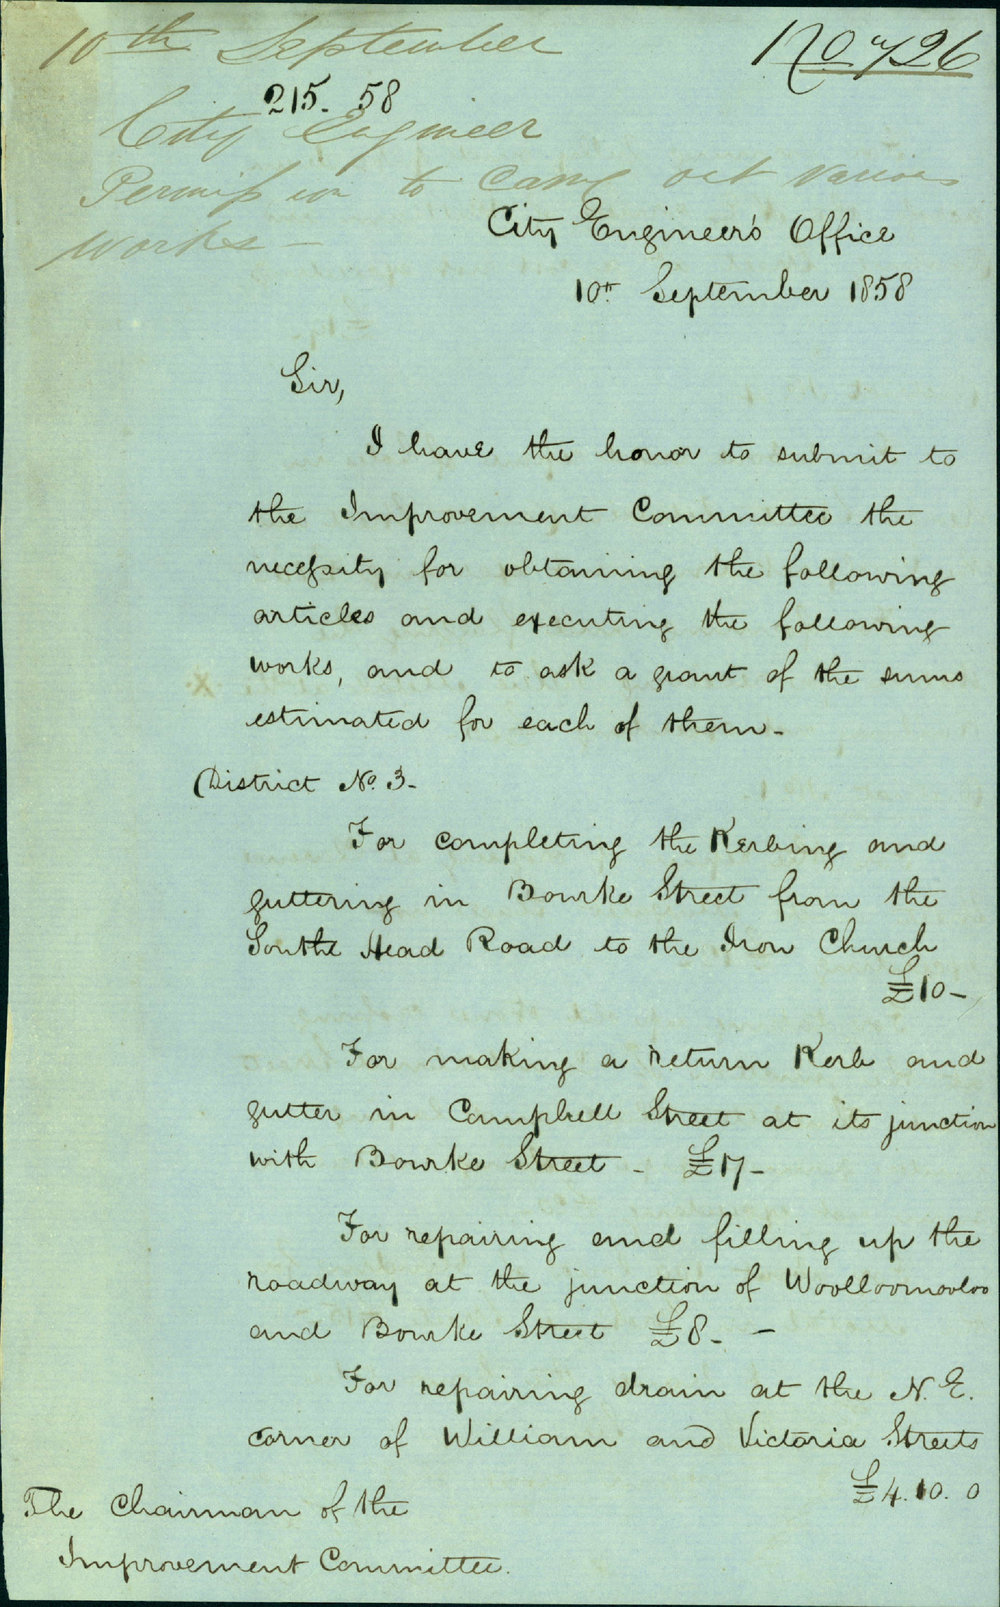 10th September
No 726
215. 58
City Engineer
Permission to carry out various
works -
City Engineer's Office
10th September 1858
Sir,
I have the honor to submit to
the Improvement Committee the
necessity for obtaining the following
articles and executing the following
works, and to ask a grant of the sums
estimated for each of them -
District No. 3 -
For completing the Kerbing and
guttering in Bourke Street from the
South Head Road to the Iron Church
£10 -
For making a return Kerb and
gutter in Campbell Street at its junction
with Bourke Street - £17 -
For repairing and filling up the
roadway at the junction of Woolloomooloo
and Bourke Street £8 - -
For repairing drain at the N. E.
corner of William and Victoria Streets
£4. 10. 0
The Chairman of the
Improvement Committee.